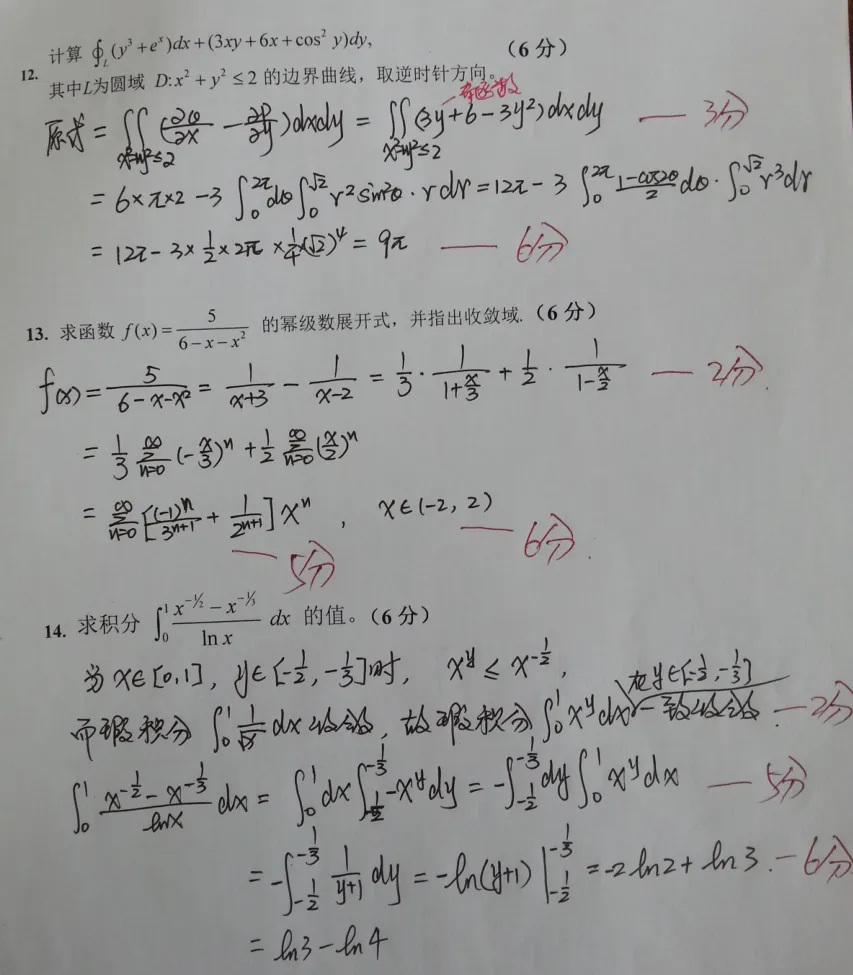 12. 计算 ∮_L (y³+eˣ)dx+(3xy+6x+cos² y)dy, (6 分)
其中L为圆域 D:x²+y² ≤ 2 的边界曲线，取逆时针方向。
奇函数
原式 = ∬_{x²+y²≤2} (∂Q/∂x − ∂P/∂y)dxdy = ∬_{x²+y²≤2} (3y+6−3y²)dxdy — 3分
= 6×π×2 −3 ∫₀^{2π} dθ ∫₀^{√2} r² sin²θ · r dr = 12π − 3 ∫₀^{2π} (1−cos2θ)/2 dθ · ∫₀^{√2} r³dr
= 12π − 3×1/2×2π×1/4(√2)⁴ = 9π — 6分
13. 求函数 f(x) = 5/(6−x−x²) 的幂级数展开式，并指出收敛域. (6 分)
f(x) = 5/(6−x−x²) = 1/(x+3) − 1/(x−2) = 1/3 · 1/(1+x/3) + 1/2 · 1/(1−x/2) — 2分.
= 1/3 ∑_{n=0}^{∞} (−x/3)ⁿ + 1/2 ∑_{n=0}^{∞} (x/2)ⁿ
= ∑_{n=0}^{∞} [(−1)ⁿ/3ⁿ⁺¹ + 1/2ⁿ⁺¹] xⁿ , x∈(−2, 2)
— 5分 — 6分.
14. 求积分 ∫₀¹ (x^{−1/2} − x^{−1/3})/ln x dx 的值。(6 分)
当 x∈[0,1], y∈[−1/2, −1/3]时, x^y ≤ x^{−1/2},
而瑕积分 ∫₀¹ 1/√x dx 收敛, 故瑕积分 ∫₀¹ x^y dx 在y∈[−1/2, −1/3] 一致收敛. — 2分
∫₀¹ (x^{−1/2} − x^{−1/3})/ln x dx = ∫₀¹ dx ∫_{−1/2}^{−1/3} −x^y dy = −∫_{−1/2}^{−1/3} dy ∫₀¹ x^y dx — 5分
= −∫_{−1/2}^{−1/3} 1/(y+1) dy = −ln(y+1) |_{−1/2}^{−1/3} = −2 ln2 + ln3. — 6分
= ln3 − ln4